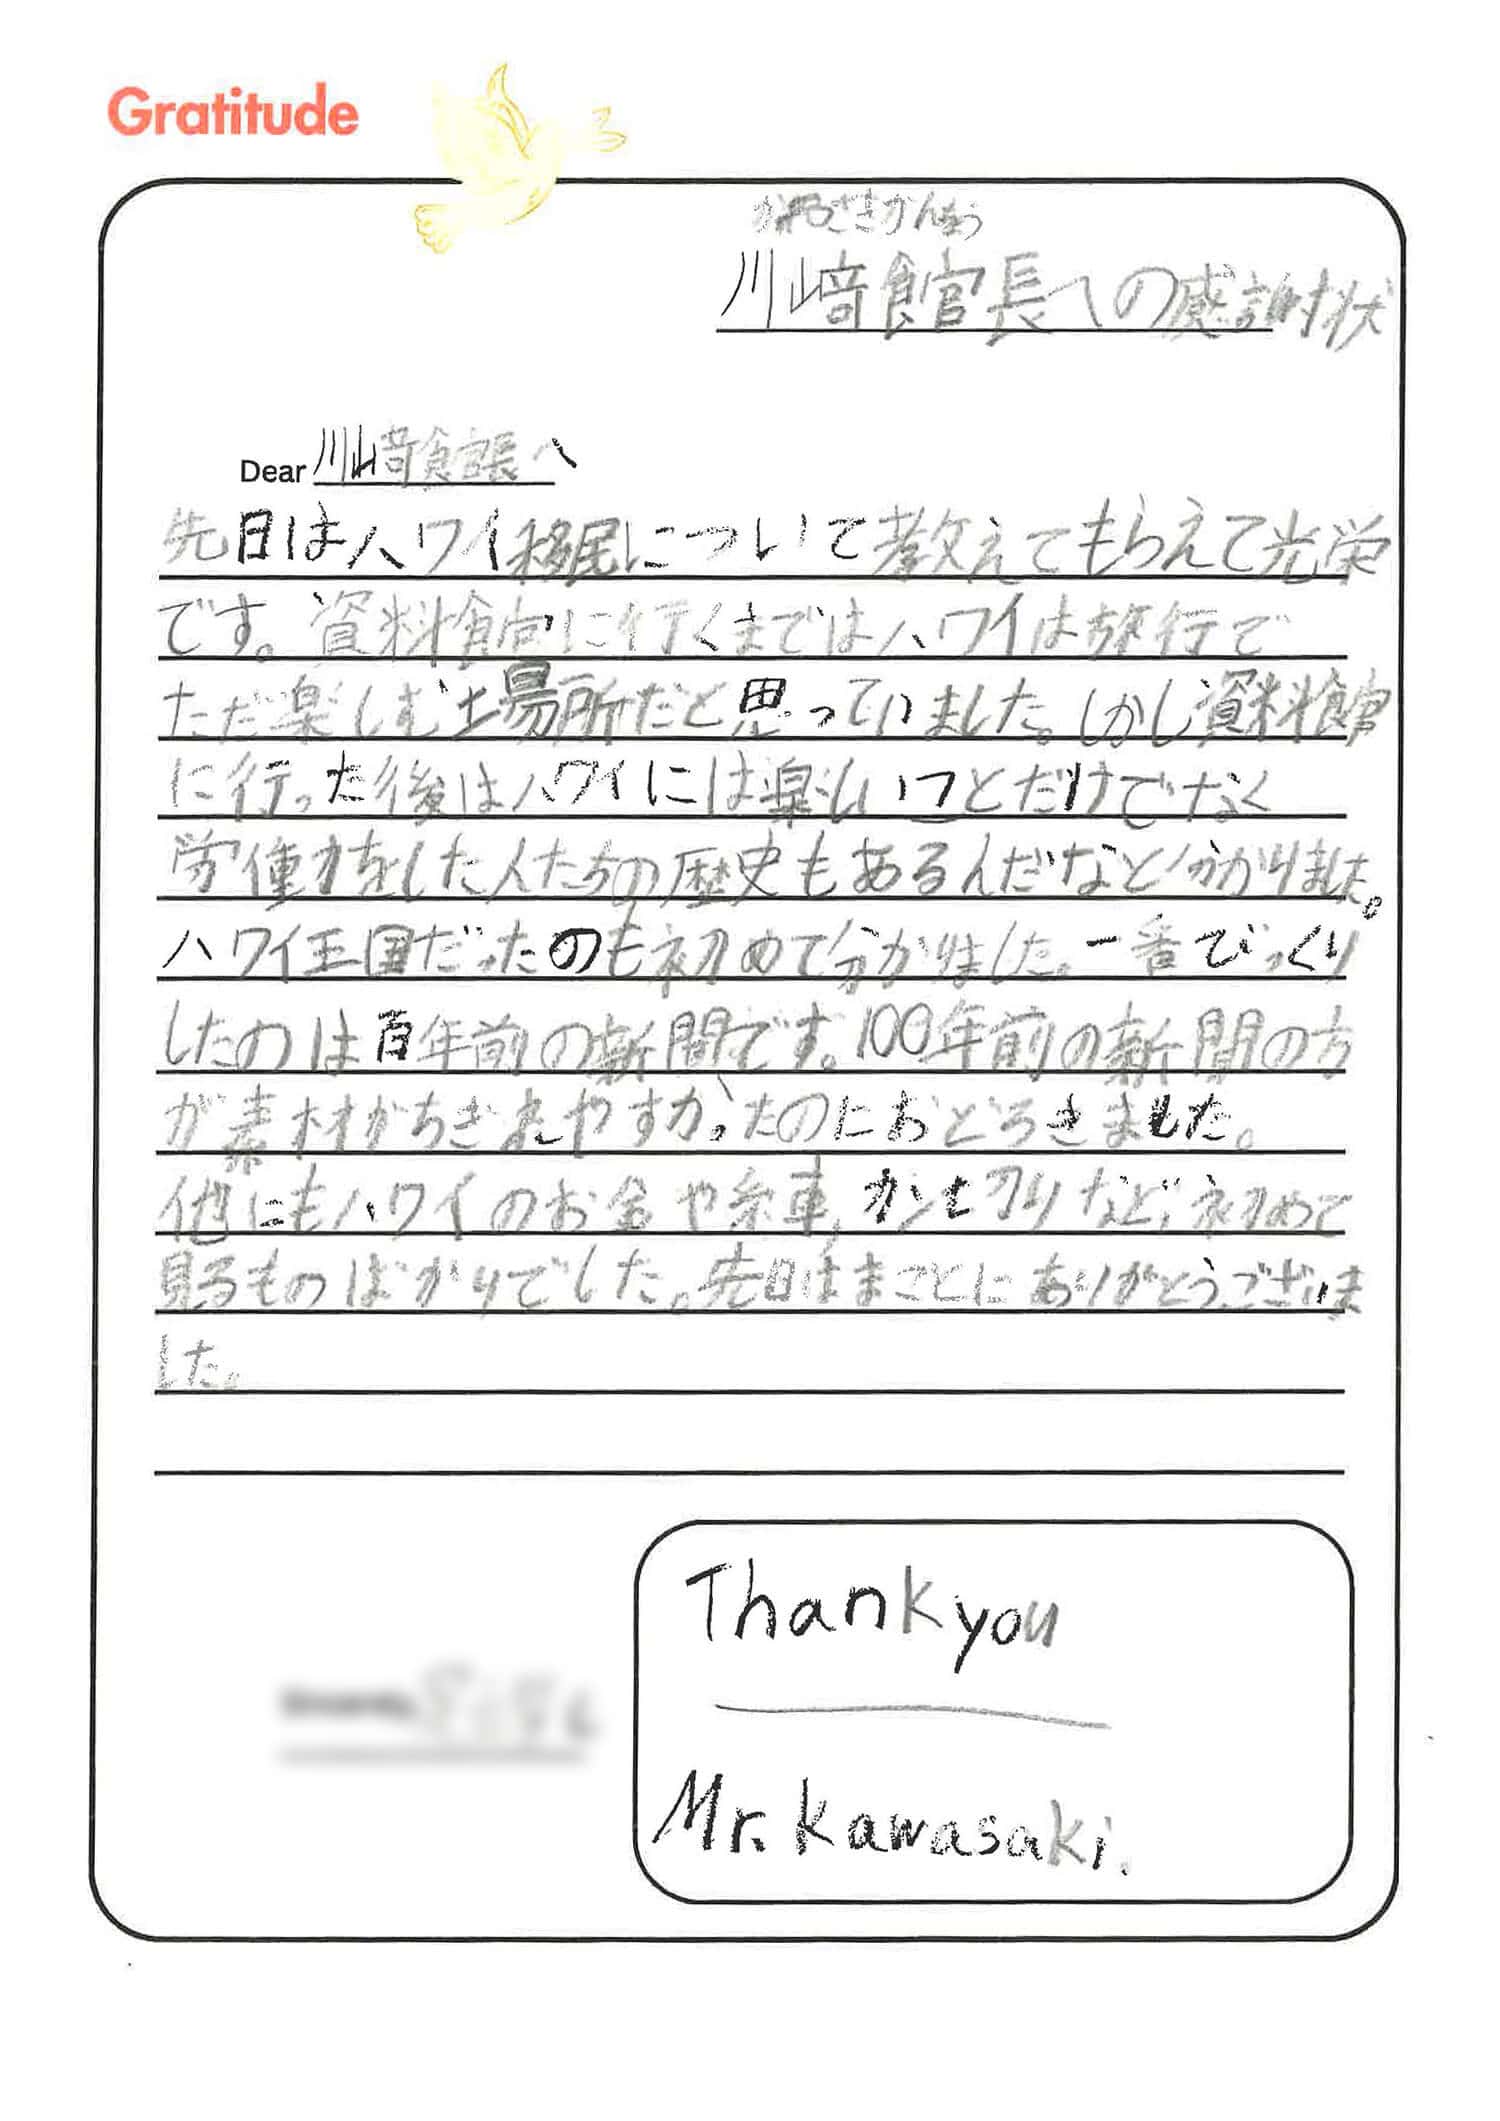 Gratitude
かわさきかんちょう
川﨑館長への感謝状
Dear 川﨑館長へ
先日はハワイ移民について教えてもらえて光栄
です。資料館に行くまではハワイは旅行で
ただ楽しむ場所だと思っていました。しかし資料館
に行った後はハワイには楽しいことだけでなく
労働をした人たちの歴史もあるんだなと分かりました。
ハワイ王国だったのも初めて分かりました。一番びっくり
したのは百年前の新聞です。100年前の新聞の方
が素材がちぎれやすかったのにおどろきました。
他にもハワイのお金や糸車,カンヒ刀りなど,初めて
見るものばかりでした。先日はまことにありがとうございま
した。
Thank you
Mr. Kawasaki.